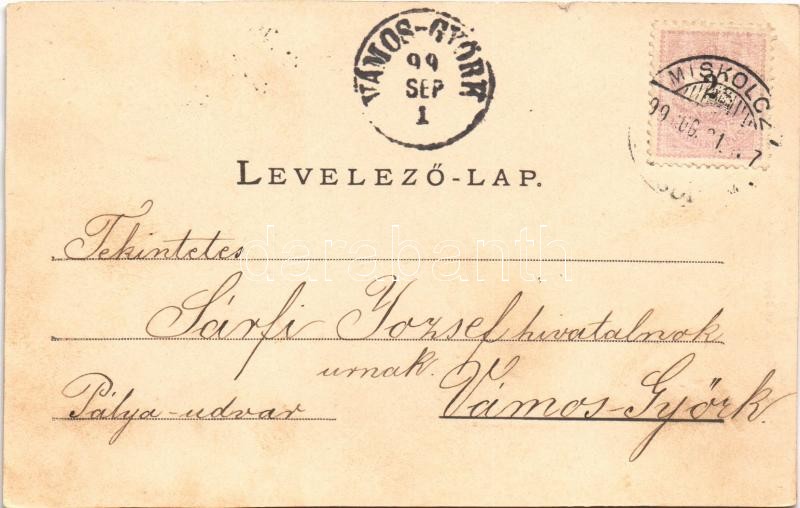 VÁMOS-GYÖRK
99
SEP
1
MISKOLCZ
2
LEVELEZŐ-LAP.
Tekintetes
darabanth
Sárfi Jozsef hivatalnok
urnak.
Pálya-udvar Vámos-Györk.